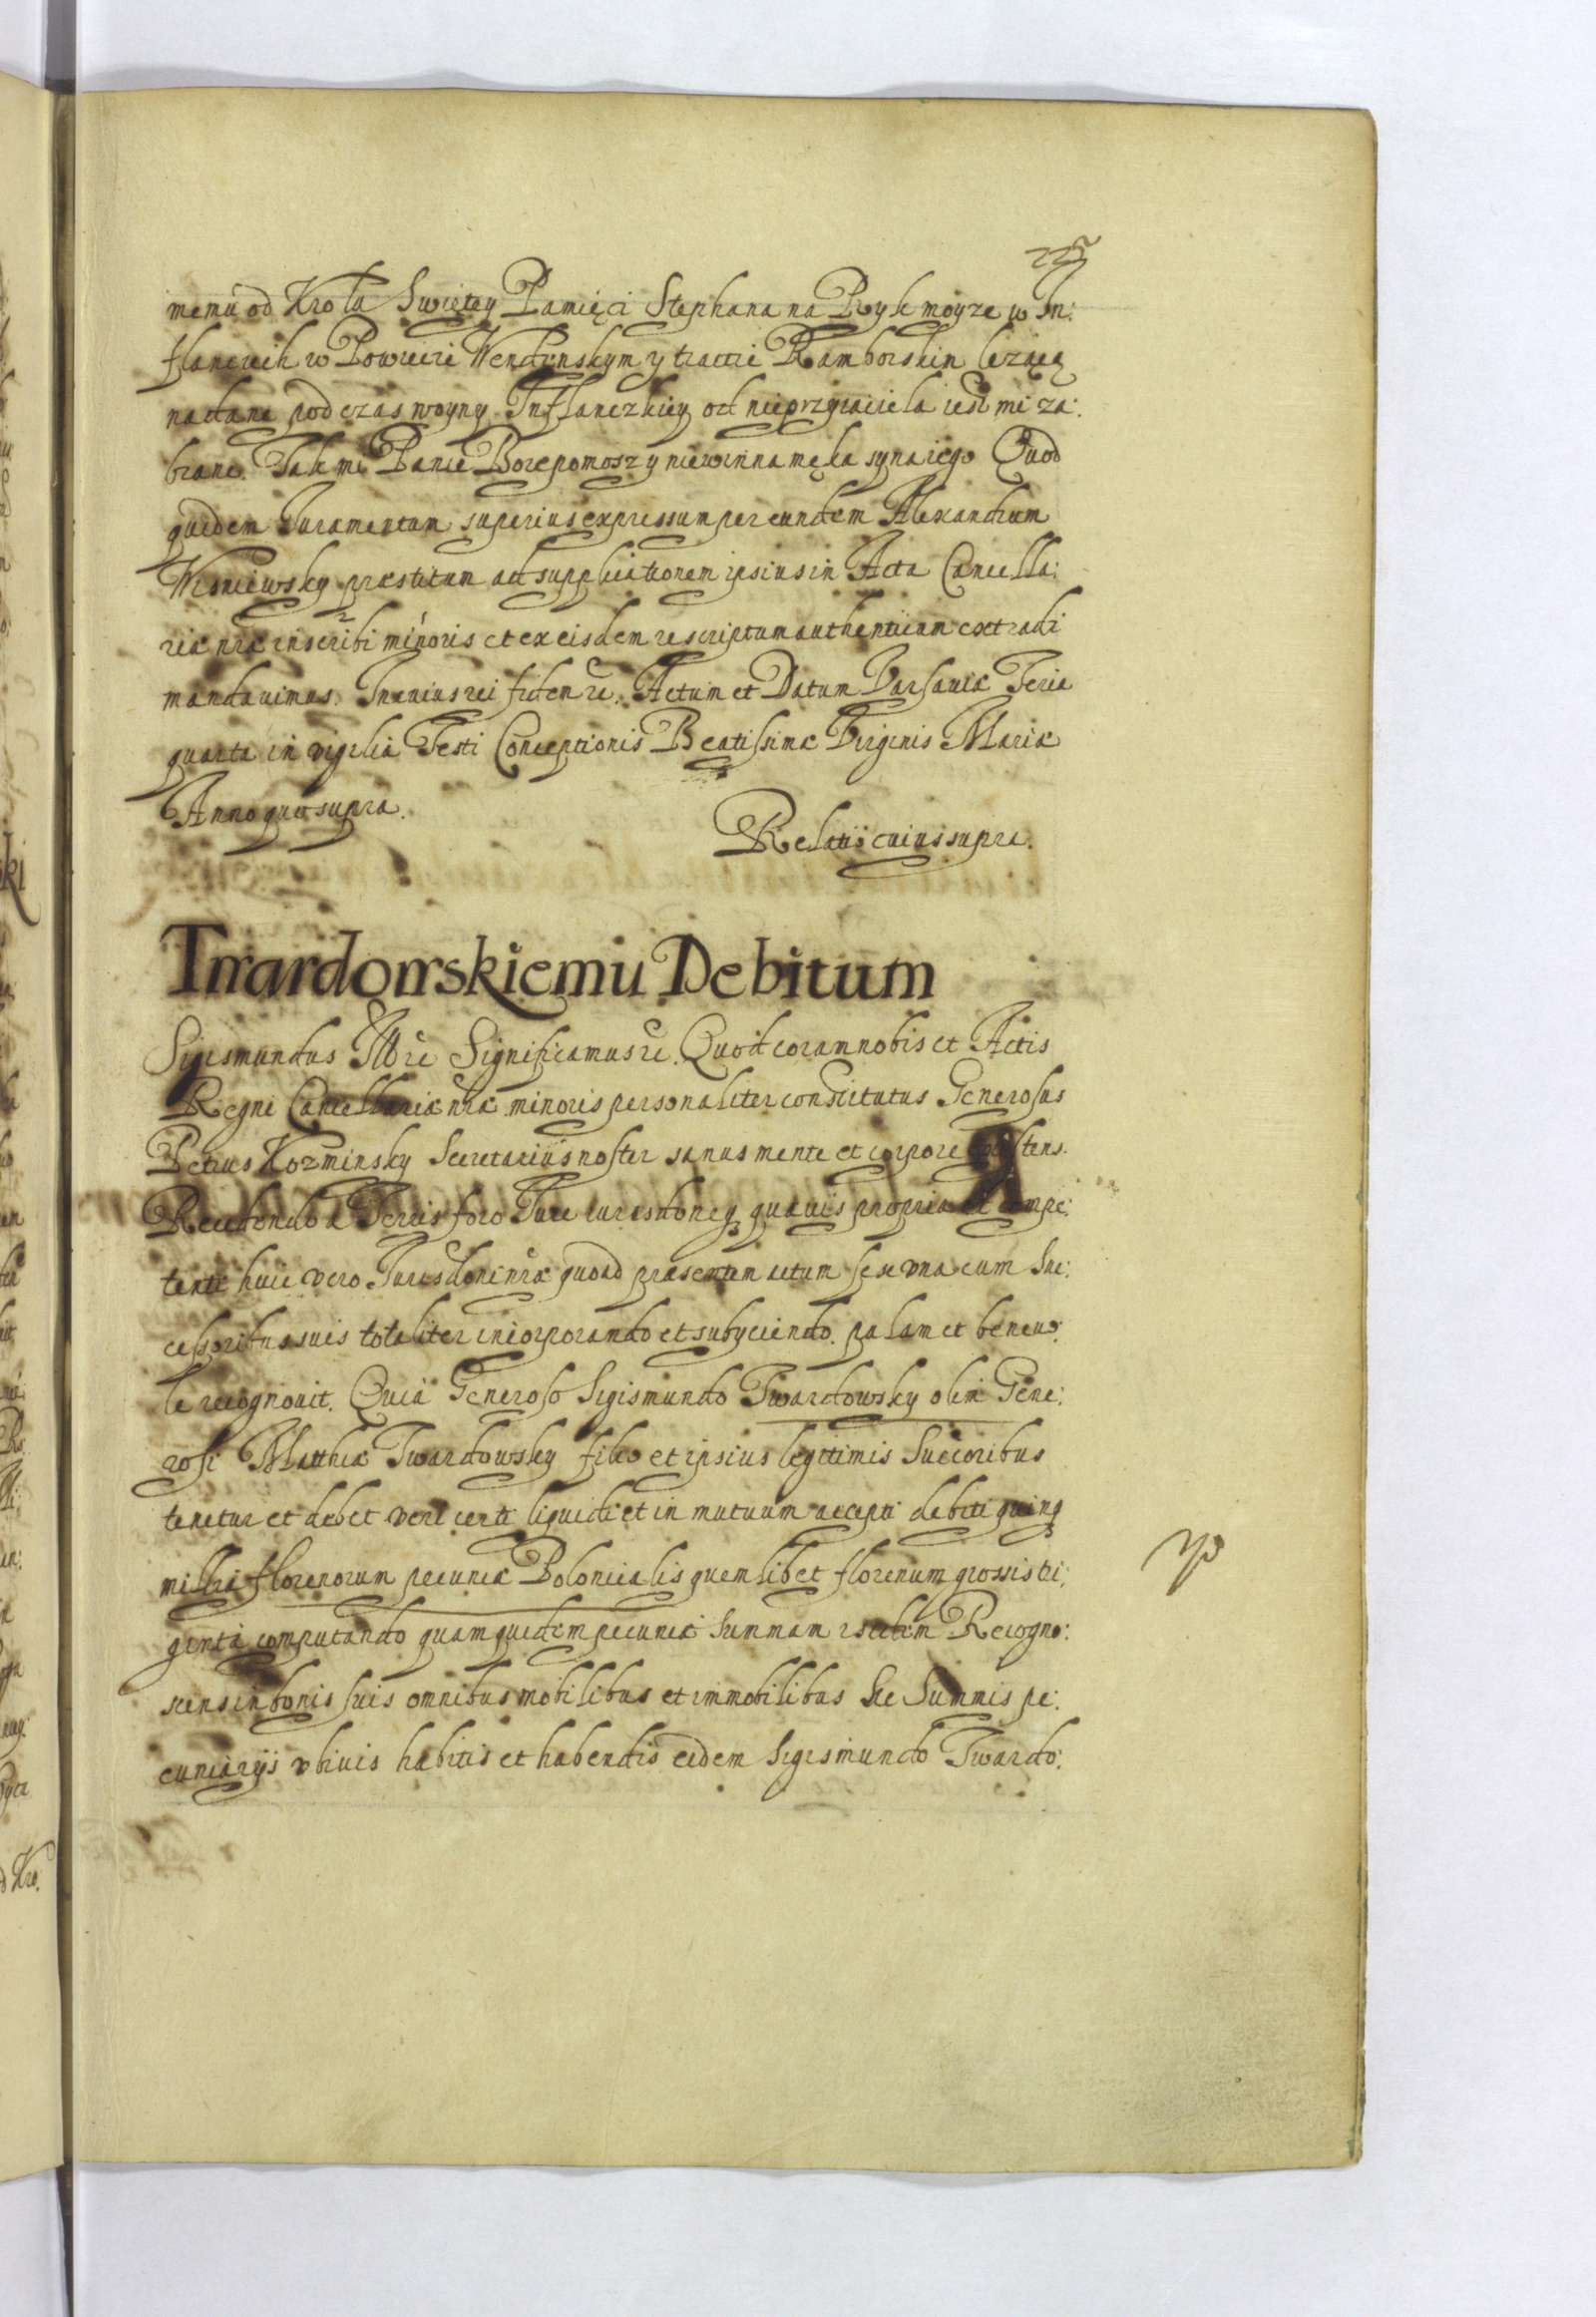 memu od Krola Swiętey Pamięci Stephana na Rykmoyze w In:
flanciech w Powiecie Wendenskym y tractie Ramborskim lezącą
nadane pod czas woyny Inflanczkiey od nieprzyiaciela iest mi za:
brane. Tak mi Panie Boze pomosz y niewinna męka syna iego Quod
quidem Iuramentum superius expressum per eundem Alexandrum
Wisniewsky præstitum ad supplicationem ipsius in Acta Cancella:
riæ nræ inscribi minoris et ex eisdem rescriptum authenticum extradi
mandauimus. In cuius rei fidem etc. Actum et Datum Varsauiæ Feria
quarta in vigilia Festi Conceptionis Beatissimæ Virginis Mariæ
Anno quo supra.
Relatio cuius supra.
Twardowskiemu Debitum
Sigismundus IIItius etc Significamus etc. Quod coram nobis et Actis
Regni Cancellariæ nræ minoris personaliter constitutus Generosus
Petrus Kozminsky Secretarius noster sanus mente et corpore existens.
Recedendo a Terris foro Iure iurisdoneq quauis propria et compe:
tenti huic vero Iurisdoni nræ quoad præsentem actum se una cum suc:
cessoribus suis totaliter incorporando et subyciendo. palam et beneuo:
le recognouit. Quia Generoso Sigismundo Twardowsky olim Gene:
rosi Matthiæ Twardowsky filio et ipsius legitimis Succoribus
tenetur et debet veri certi liquidi et in mutuum accepti debiti quinq
millia florenorum pecuniæ Polonicalis quemlibet florenum grossis tri:
ginta computando quamquidem pecuniæ summam istidem Recogno:
scens in bonis suis omnibus mobilibus et immobilibus ac Summis pe:
cuniariis vbiuis habitis et habendis eidem Sigismundo Twardo: